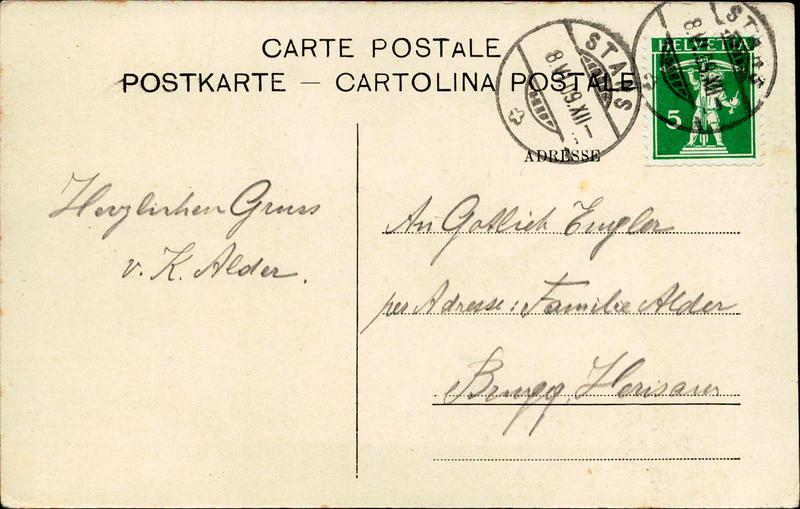 CARTE POSTALE
POSTKARTE – CARTOLINA POSTALE
STANS
8.VI.09.XII–
STANS
HELVETIA
5
ADRESSE
Herzlichen Gruss
v. K. Alder.
An Gottlieb Engler
per Adresse: Familie Alder
Brugg, Herisau